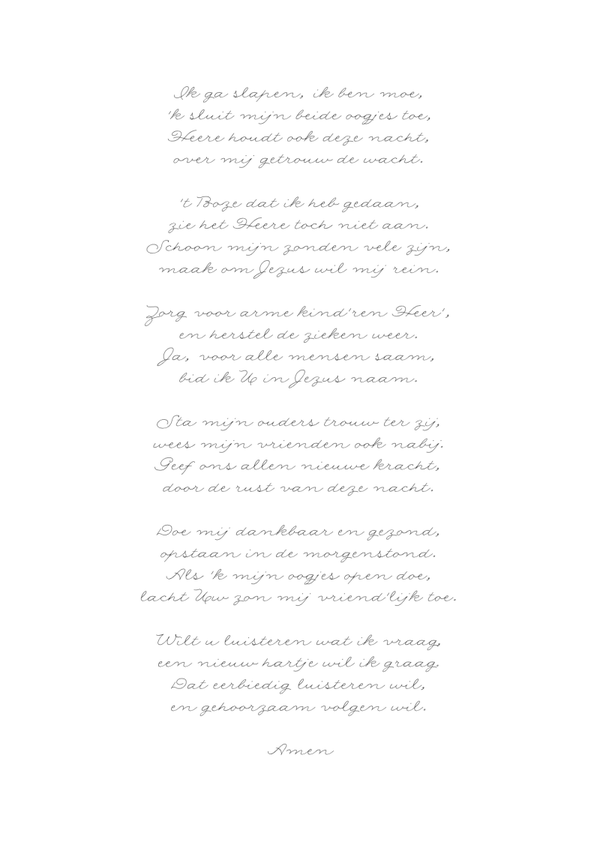 Ik ga slapen, ik ben moe,
'k sluit mijn beide oogjes toe,
Heere houdt ook deze nacht,
over mij getrouw de wacht.
't Boze dat ik heb gedaan,
zie het Heere toch niet aan.
Schoon mijn zonden vele zijn,
maak om Jezus wil mij rein.
Zorg voor arme kind'ren Heer',
en herstel de zieken weer.
Ja, voor alle mensen saam,
bid ik U in Jezus naam.
Sta mijn ouders trouw ter zij,
wees mijn vrienden ook nabij.
Geef ons allen nieuwe kracht,
door de rust van deze nacht.
Doe mij dankbaar en gezond,
opstaan in de morgenstond.
Als 'k mijn oogjes open doe,
lacht Uw zon mij vriend'lijk toe.
Wilt u luisteren wat ik vraag,
een nieuw hartje wil ik graag
Dat eerbiedig luisteren wil,
en gehoorzaam volgen wil.
Amen